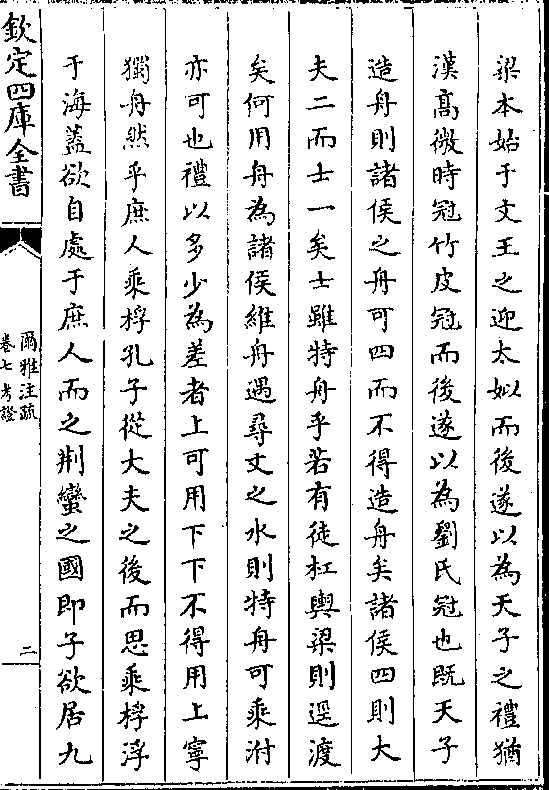 梁本始于文王之迎太姒而後遂以為天子之禮猶
漢高微時冠竹皮冠而後遂以為劉氏冠也既天子
造舟則諸侯之舟可四而不得造舟矣諸侯四則大
夫二而士一矣士雖特舟乎若有徒杠輿梁則逕渡
矣何用舟為諸侯維舟遇尋丈之水則特舟可乘泭
亦可也禮以多少為差者上可用下下不得用上寧
獨舟然乎庶人乘桴孔子從大夫之後而思乘桴浮
于海蓋欲自處于庶人而之荆蠻之國即子欲居九
欽定四庫全書
爾雅注疏
卷七考證
二